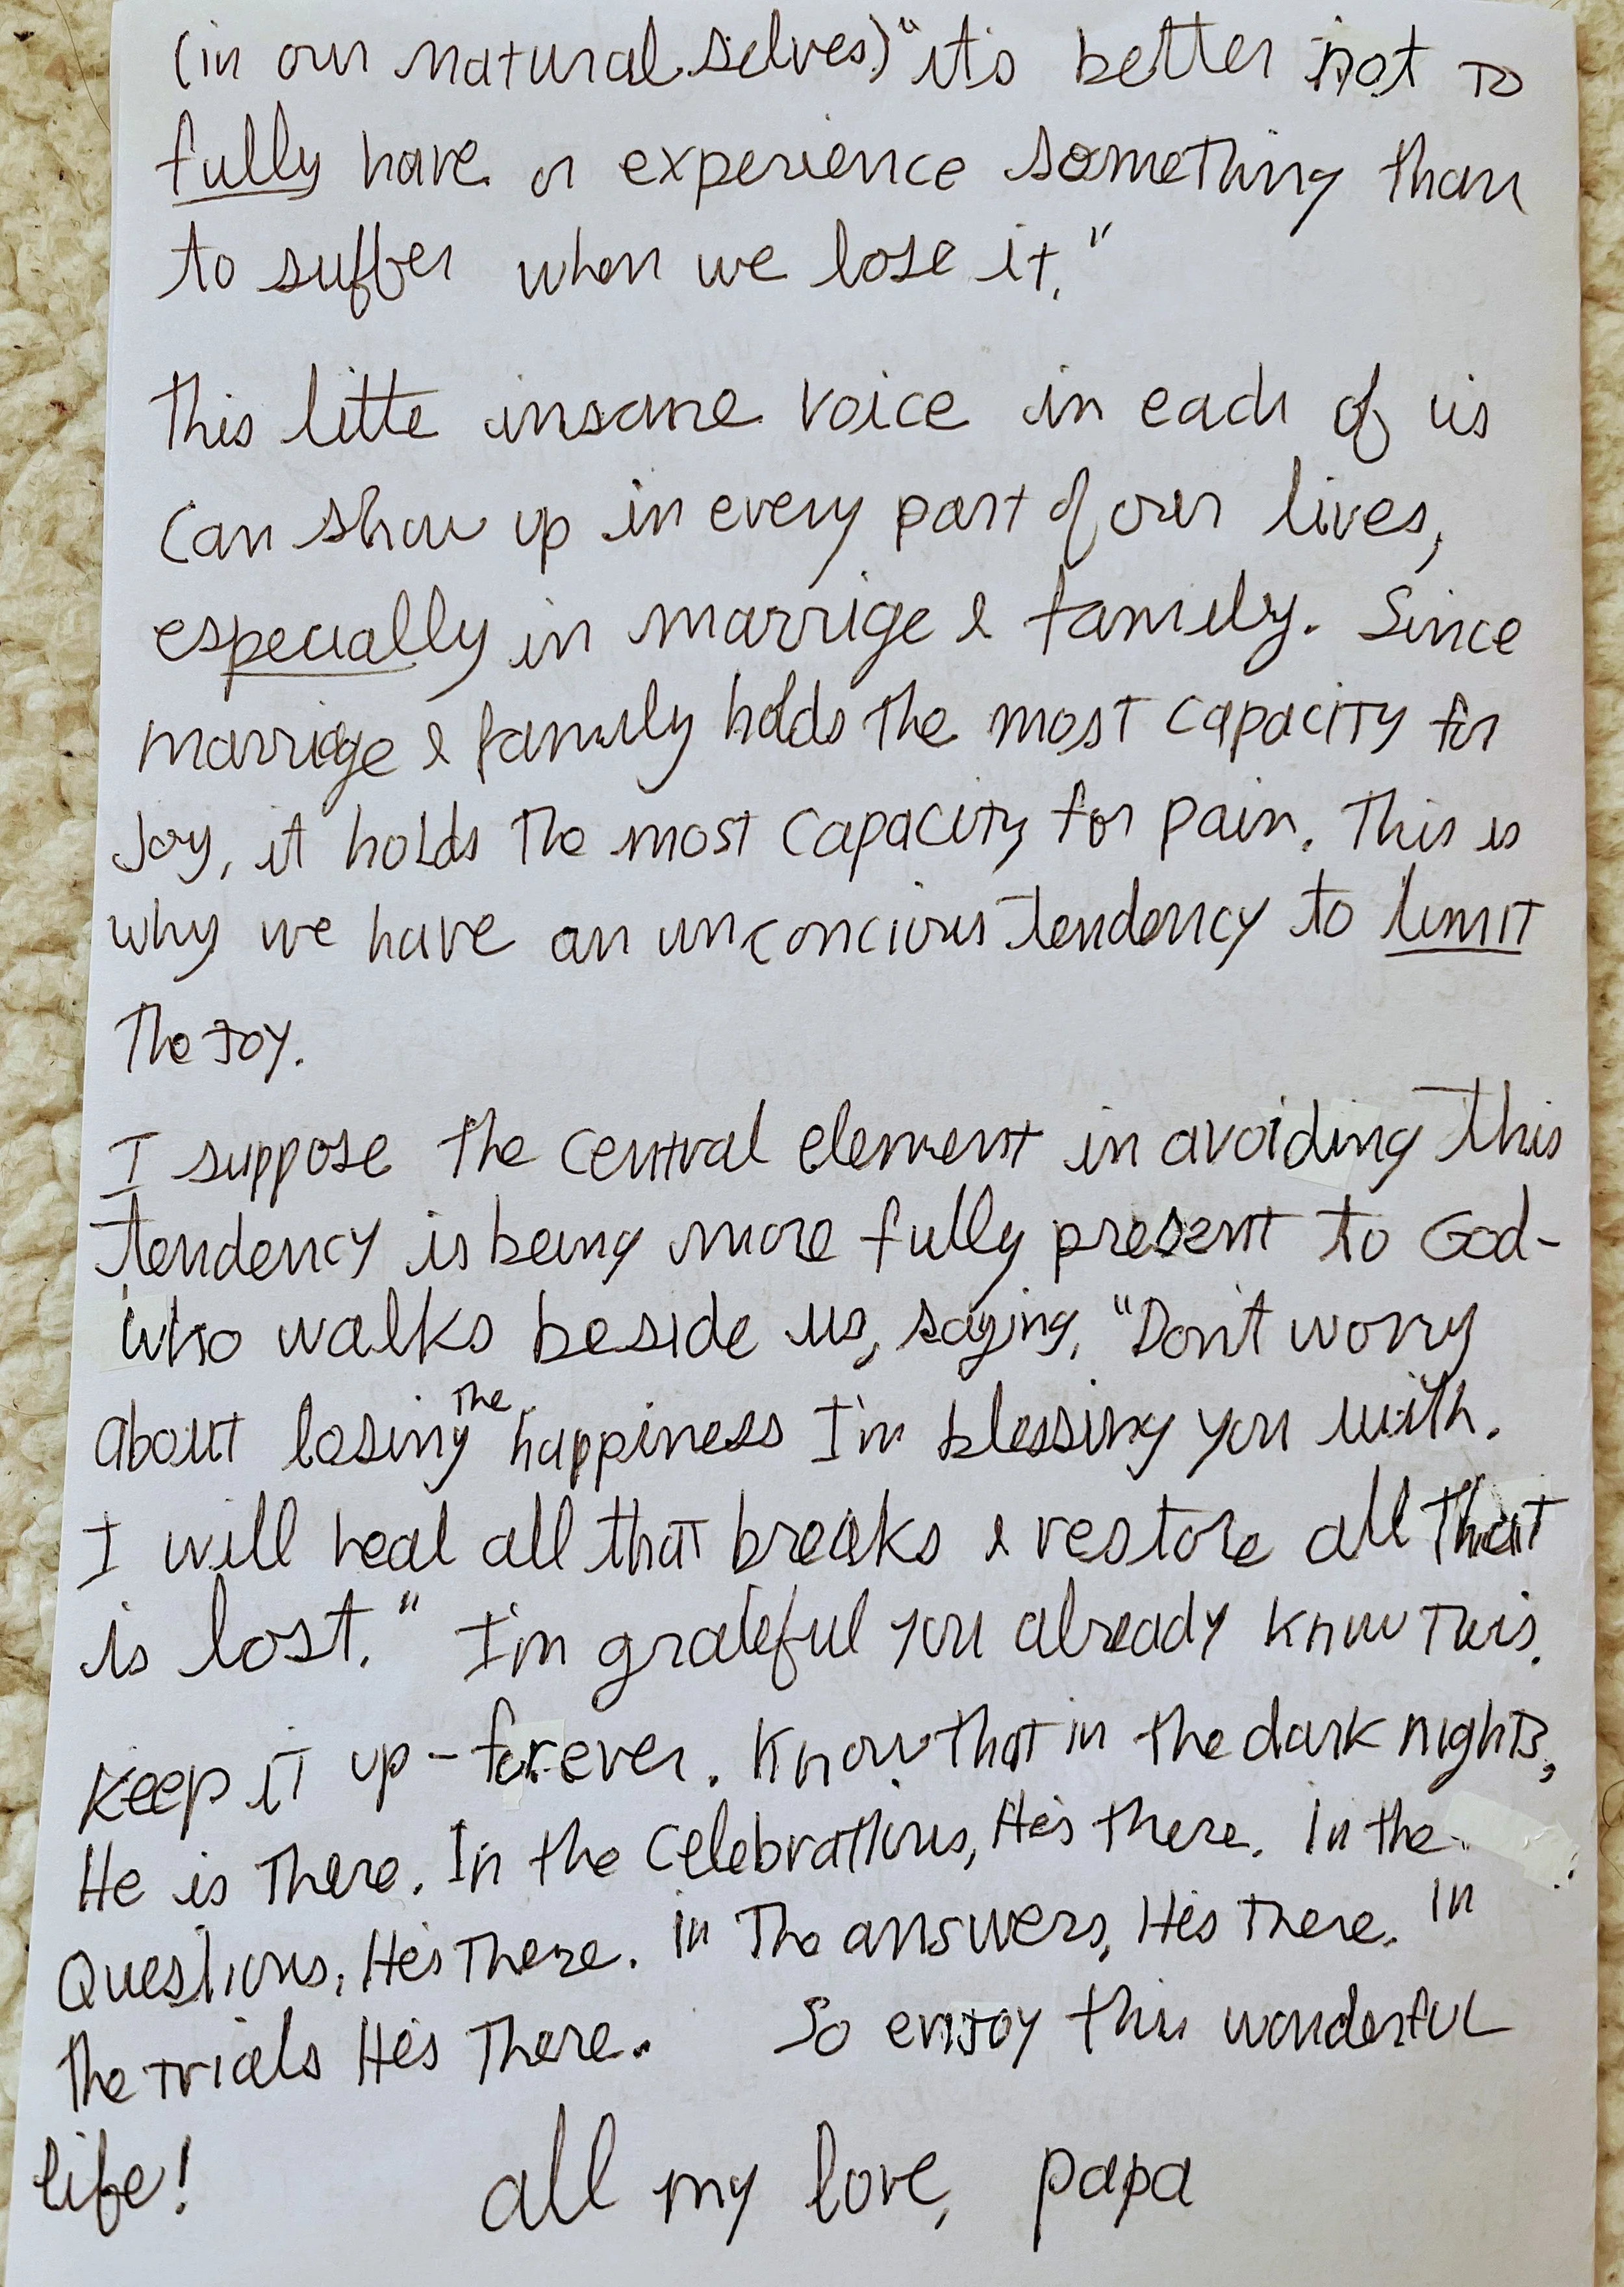 (in our natural selves) "it's better not to
fully have or experience something than
to suffer when we lose it."
This litte insane voice in each of us
can show up in every part of our lives,
especially in marrige & family. Since
marriage & family holds the most capacity for
Joy, it holds the most capacity for pain. This is
why we have an unconcious tendency to limit
the Joy.
I suppose the central element in avoiding this
tendency is being more fully present to God-
who walks beside us, saying, "Don't worry
about losing the happiness I'm blessing you with.
I will heal all that breaks & restore all that
is lost." I'm grateful you already know this.
Keep it up - forever. Know that in the dark nights,
He is there. In the celebrations, He's there. In the
Questions, He's there. in the answers, He's there. in
the trials He's there. So enjoy this wonderful
life! all my love, papa